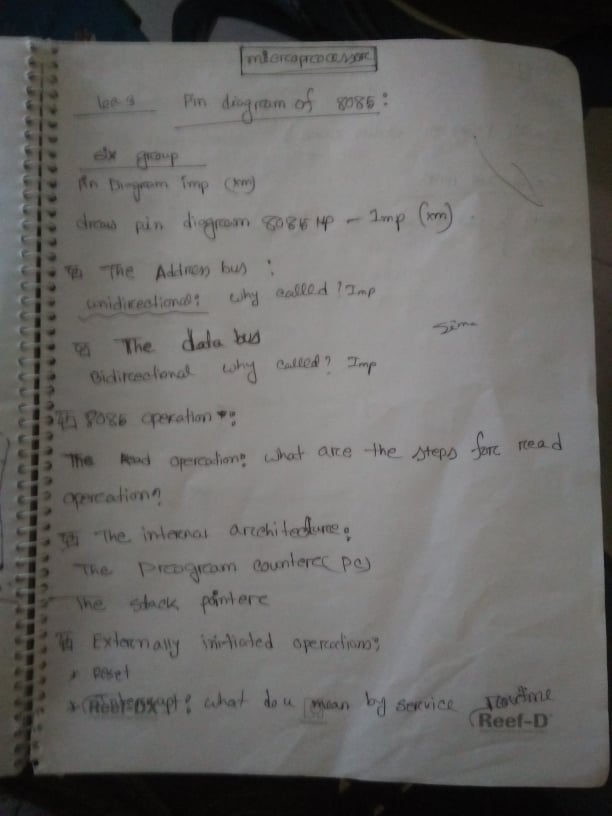 microprocessor
Lec 3 Pin diagram of 8085:
six group
Pin Diagram Imp (xm)
draw pin diagram 8085 MP - Imp (xm)
The Address bus :
unidirectional: why called? Imp
The data bus
Bidirectional why called? Imp
8085 operation:
The Read operation: what are the steps for read
operation?
The internal architecture:
The Program counter (PC)
The stack pointer
Externally initiated operations:
* Reset
* Interrupt: what do u mean by service routine
Reef-DX
Reef-D